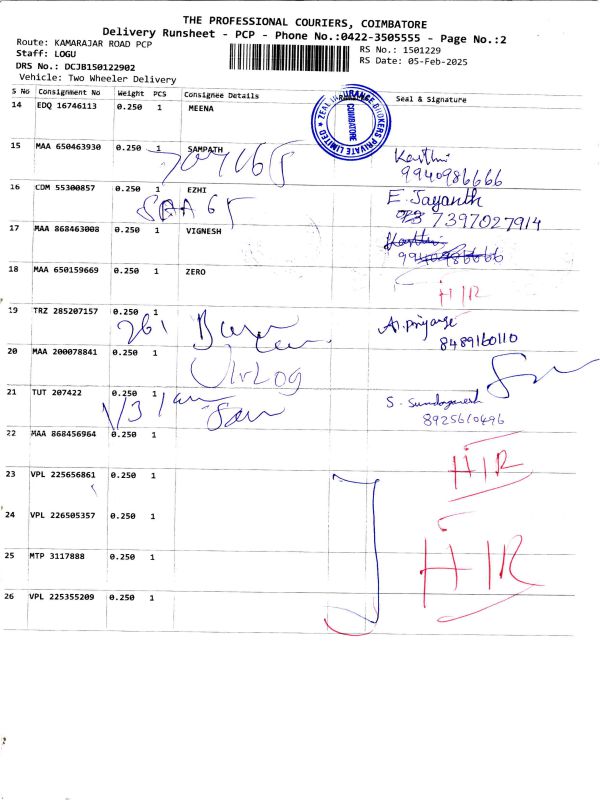 THE PROFESSIONAL COURIERS, COIMBATORE
Delivery Runsheet - PCP - Phone No.:0422-3505555 - Page No.:2
Route: KAMARAJAR ROAD PCP
Staff: LOGU
RS No.: 1501229
DRS No.: DCJB150122902
RS Date: 05-Feb-2025
Vehicle: Two Wheeler Delivery
S No Consignment No Weight PCS Consignee Details Seal & Signature
14 EDQ 16746113 0.250 1 MEENA
ZEAL INSURANCE BROKERS PRIVATE LIMITED
COIMBATORE
15 MAA 650463930 0.250 1 SAMPATH
Karthi
9940986666
16 CDM 55300857 0.250 1 EZHI
E. Jayanth
7397027914
17 MAA 868463008 0.250 1 VIGNESH
Karthi
9940986666
18 MAA 650159669 0.250 1 ZERO
H/R
19 TRZ 285207157 0.250 1
261
A. Priyanga
8489160110
20 MAA 200078841 0.250 1
21 TUT 207422 0.250 1
S. Sundaganesh
8925610496
22 MAA 868456964 0.250 1
H/R
23 VPL 225656861 0.250 1
24 VPL 226505357 0.250 1
H/R
25 MTP 3117888 0.250 1
26 VPL 225355209 0.250 1